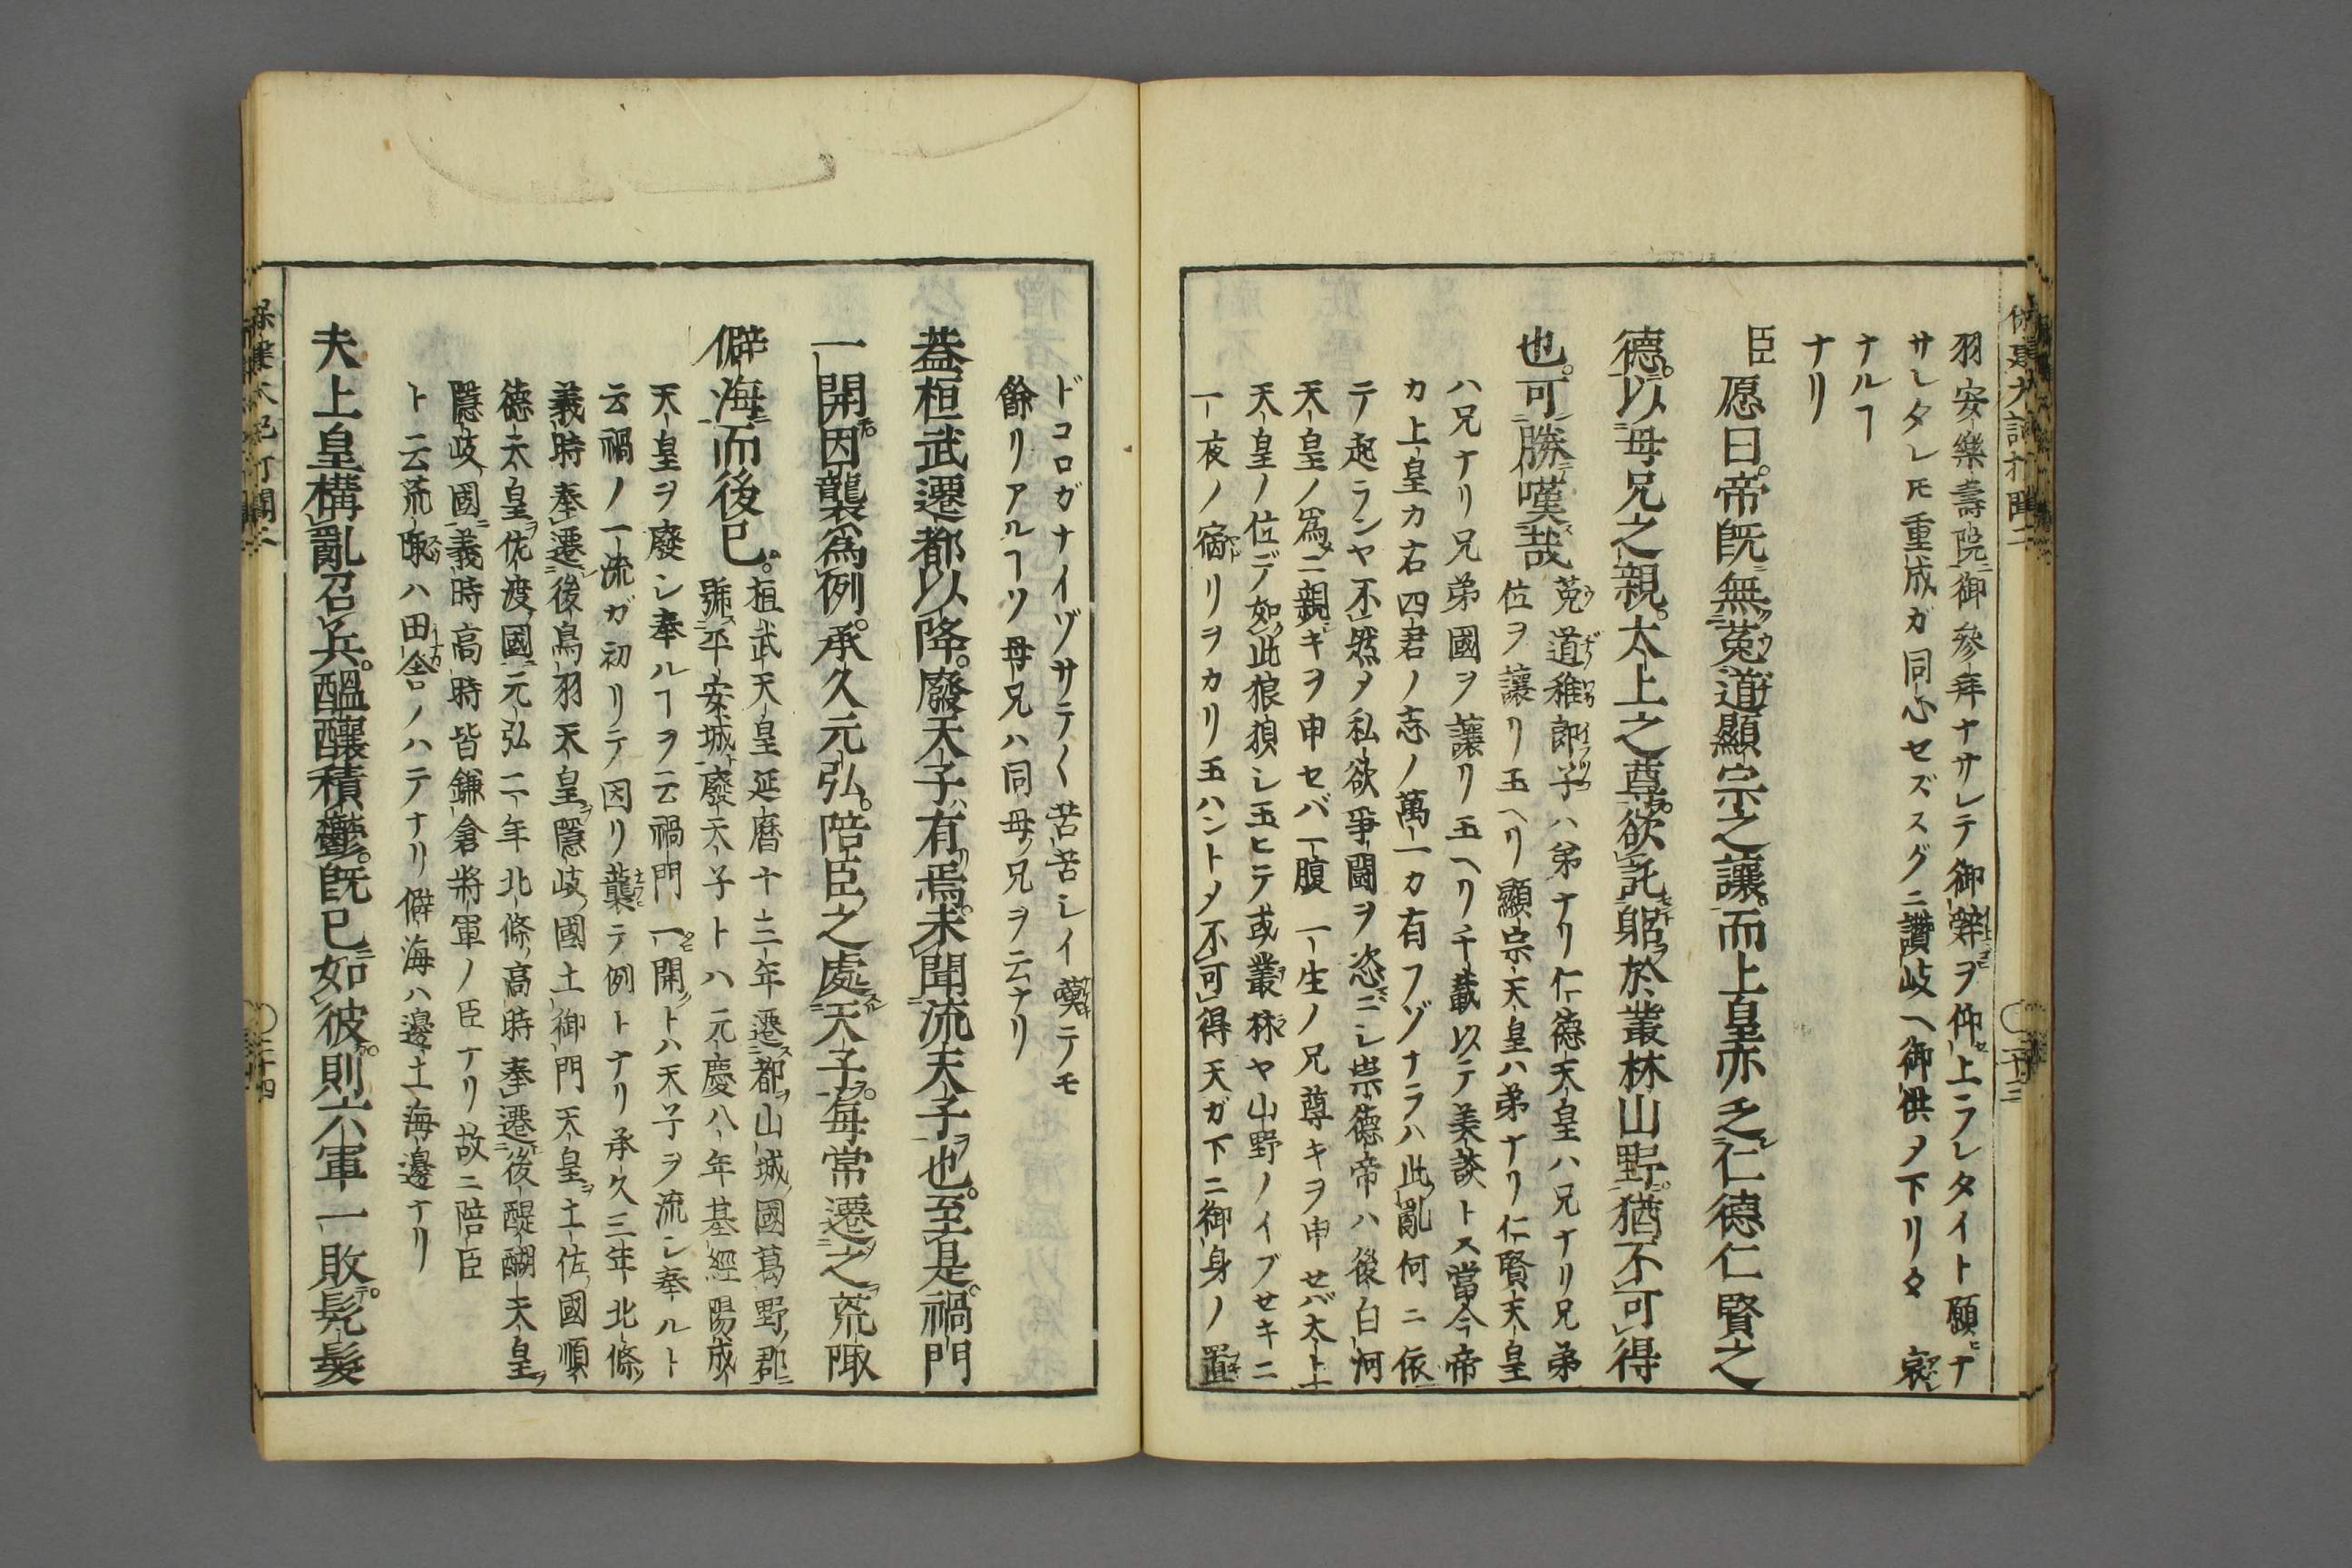 羽安樂壽院御參拜ナサレテ御辤ヲ仰上ラレタイト願ナ
サレタレ𪜈重成ガ同心セズスグニ讚岐ヘ御供〆下リタ哀
ナルヿ
ナリ
臣愿曰帝既無菟道顯宗之讓而上皇亦乏仁德仁賢之
德以母兄之親太上之尊欲託躬於叢林山野猶不可得
也可勝嘆哉
菟道稚郎子ハ弟ナリ仁德天皇ハ兄ナリ兄弟
位ヲ讓リ玉ヘリ顯宗天皇ハ弟ナリ仁賢天皇
ハ兄ナリ兄弟國ヲ讓リ玉ヘリ千載以テ美談トス當今帝
カ上皇カ右四君ノ志ノ萬一カ有フゾナラハ此亂何ニ依
テ起ランヤ不然〆私欲爭鬪ヲ恣ニシ崇德帝ハ後白河
天皇ノ爲ニ親キヲ申セバ一腹一生ノ兄尊キヲ申セバ太上
天皇ノ位デ如此狼狽シ玉ヒテ或叢林ヤ山野ノイブセキニ
一夜ノ宿リヲカリ玉ハントメ不可得天ガ下ニ御身ノ置
ドコロガナイゾサテ〱苦苦シイ嘆テモ
餘リアルヿソ母兄ハ同母兄ヲ云ナリ
蓋桓武遷都以降廢天子有焉未聞流天子也至是禍門
一開因襲爲例承久元弘陪臣之處天子每常遷之荒陬
僻海而後已
桓武天皇延曆十三年遷都山城國葛野郡
號平安城廢天子トハ元慶八年基經陽成
天皇ヲ廢シ奉ルヿヲ云禍門一開トハ天子ヲ流シ奉ルト
云禍ノ一流ガ初リテ因リ襲テ例トナリ承久三年北條
義時奉遷後鳥羽天皇隱岐國土御門天皇土佐國順
德天皇佐渡國元弘二年北條高時奉遷後醍醐天皇
隱岐國義時高時皆鎌倉將軍ノ臣ナリ故ニ陪臣
ト云荒陬ハ田舍ノハテナリ僻海ハ邊土海邊ナリ
夫上皇構亂召兵醞釀積鬱既已如彼則六軍一敗髡髮